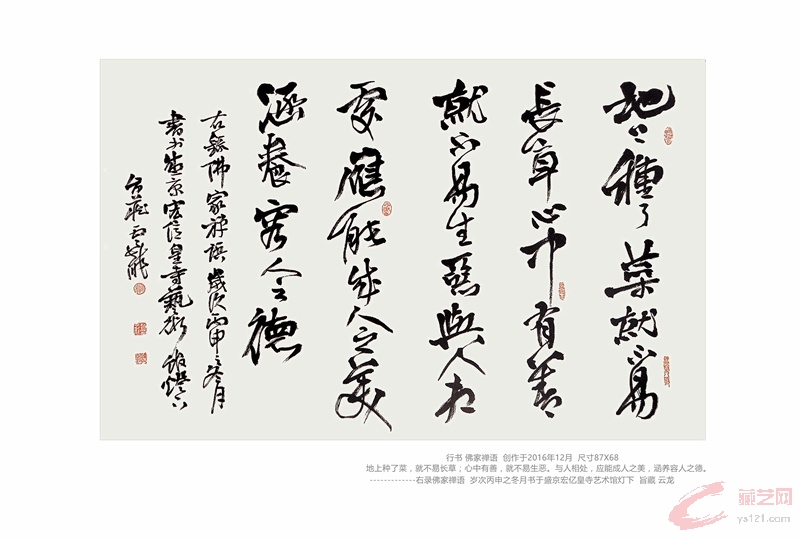 地上種了菜就不易
長草心中有善
就不易生惡與人相
處應能成人之美
涵養容人之德
右錄佛家禅語歲次丙申之冬月
書于盛京宏億皇寺藝術館燈下
旨藏云龍
行书 佛家禅语 创作于2016年12月 尺寸87X68
地上种了菜，就不易长草；心中有善，就不易生恶。与人相处，应能成人之美，涵养容人之德。
-------------右录佛家禅语 岁次丙申之冬月书于盛京宏亿皇寺艺术馆灯下 旨藏 云龙
藏艺网
ys121.com